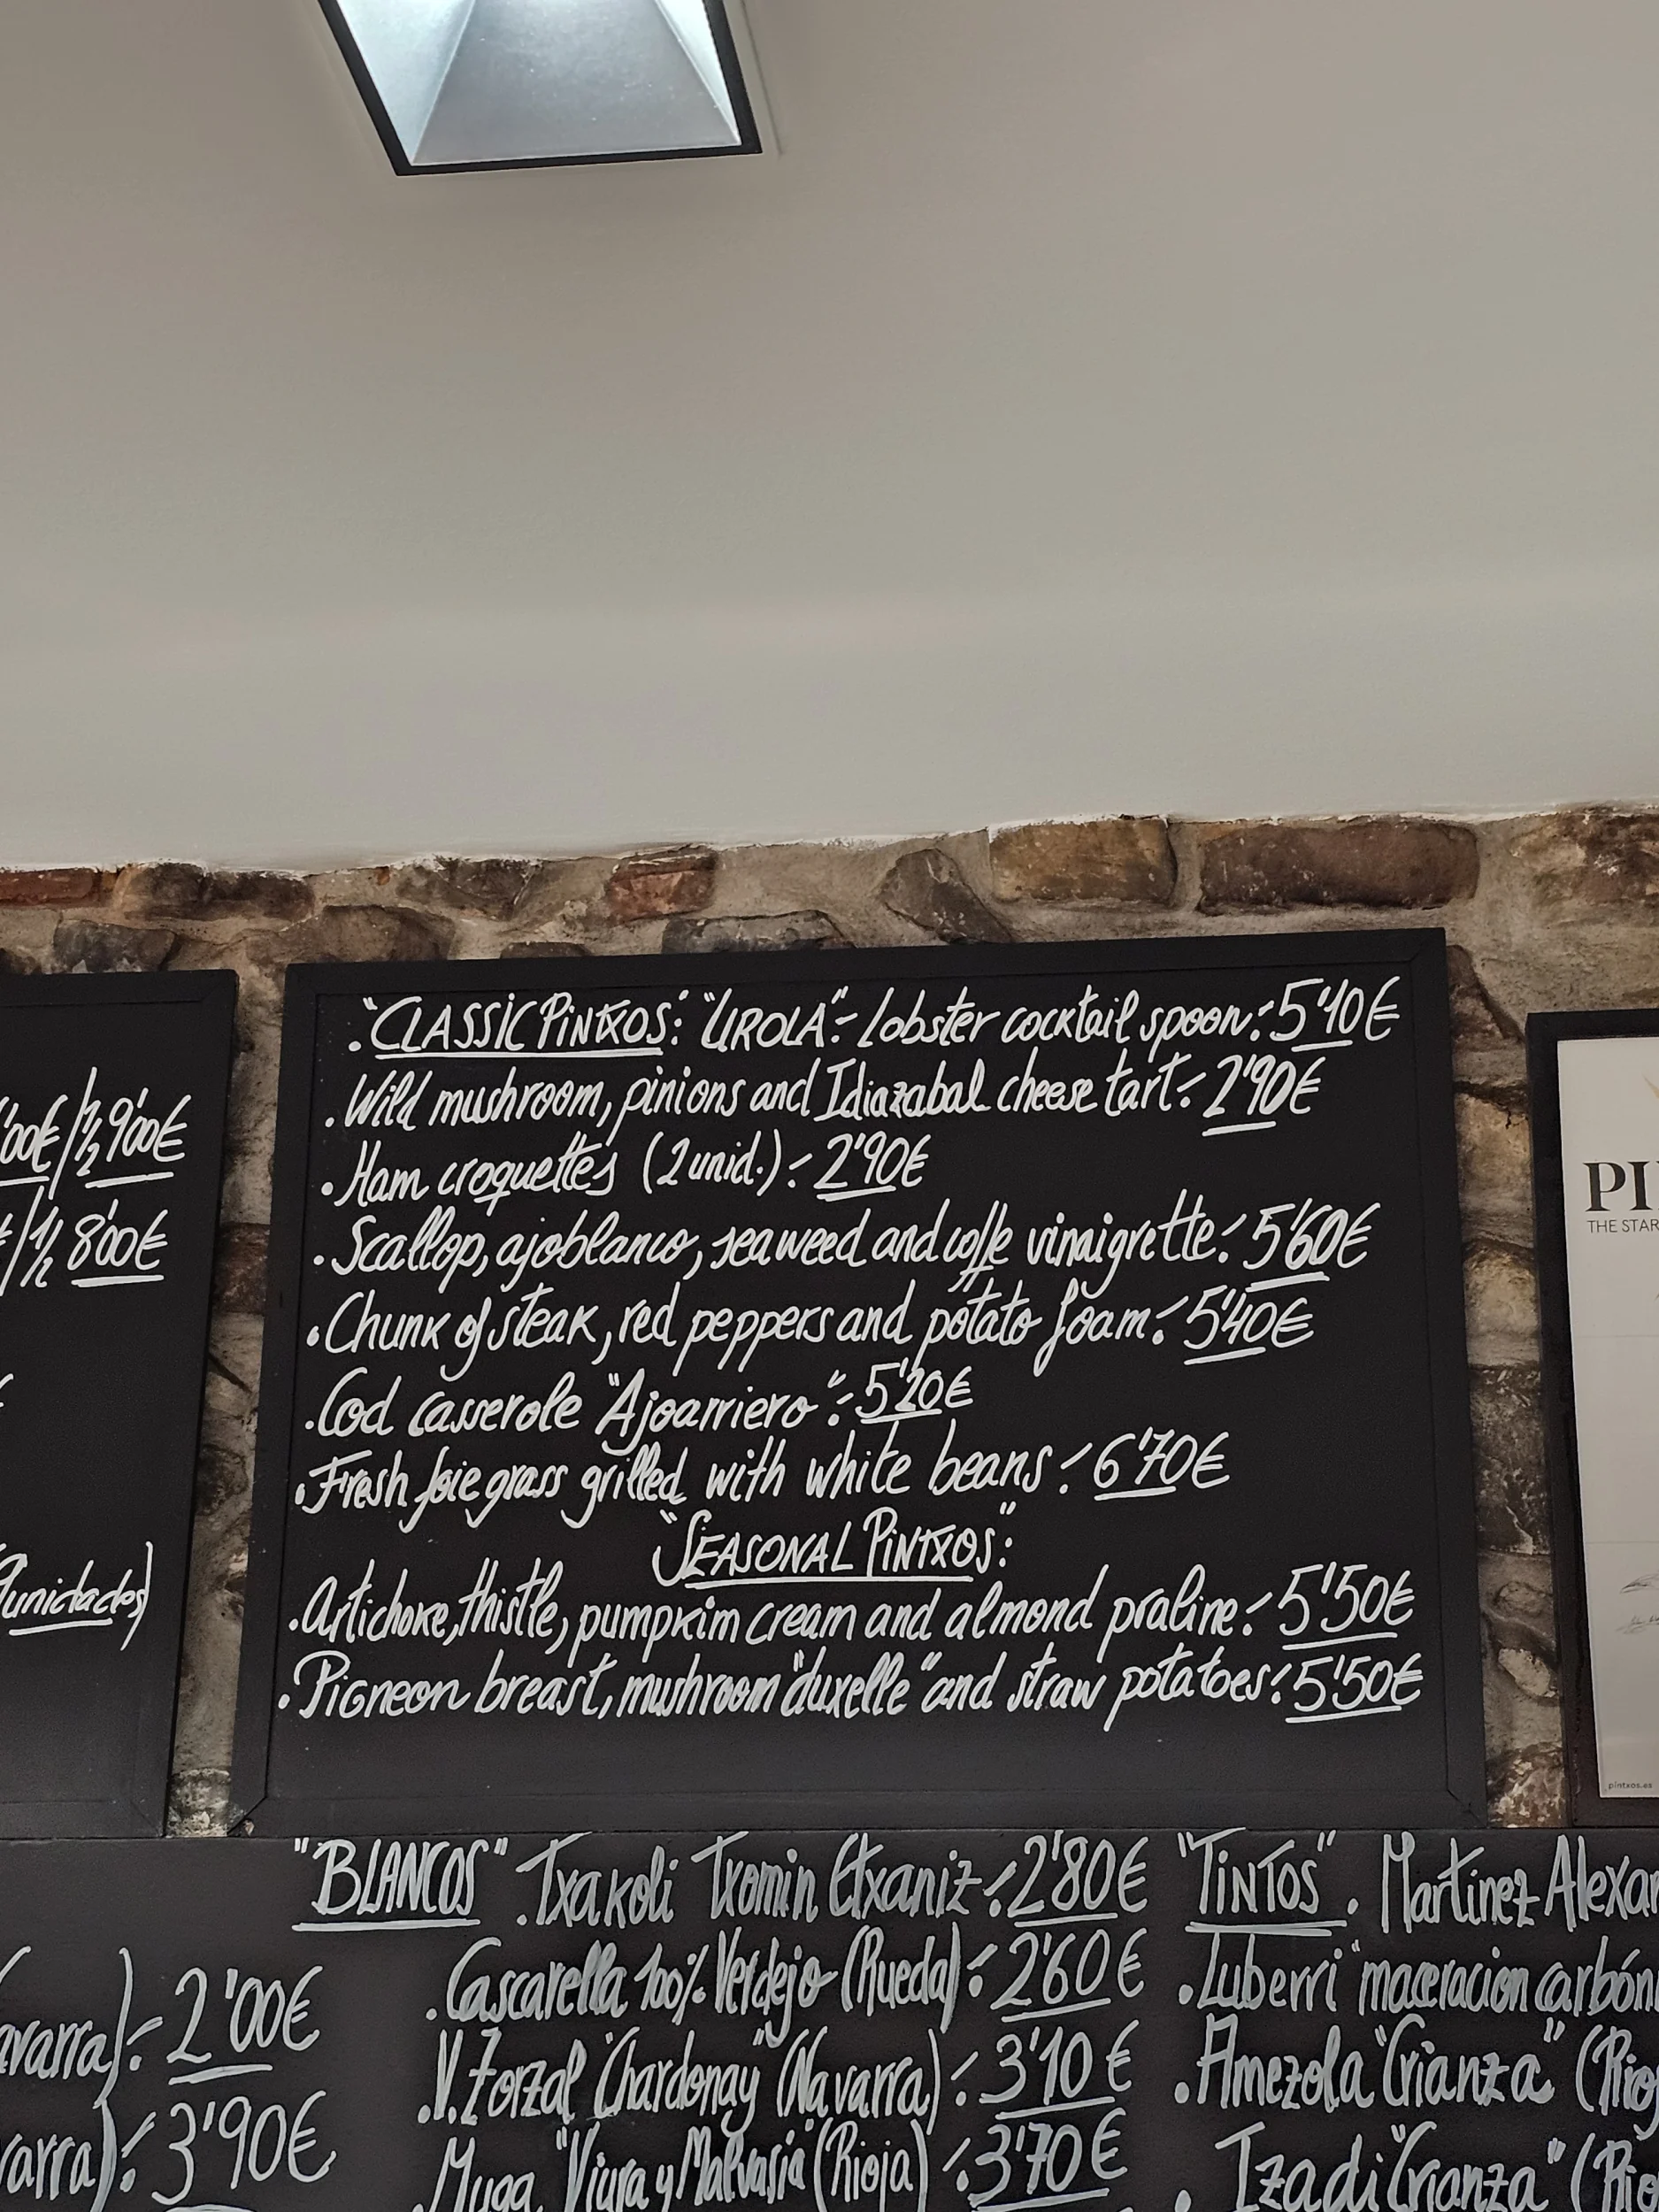 "CLASSIC PINTXOS": "UROLA":- Lobster cocktail spoon:- 5'10€
. Wild mushroom, pinions and Idiazabal cheese tart:- 2'90€
. Ham croquettes (2 unid.):- 2'90€
. Scallop, ajoblanco, seaweed and coffe vinaigrette:- 5'60€
. Chunk of steak, red peppers and potato foam:- 5'40€
. Cod casserole "Ajoarriero":- 5'20€
. Fresh foie grass grilled with white beans:- 6'70€
"SEASONAL PINTXOS":
. Artichoke, thistle, pumpkim cream and almond praline:- 5'50€
. Pigneon breast, mushroom "duxelle" and straw potatoes:- 5'50€
'00€/½ 9'00€
€/½ 8'00€
unidades)
PI
THE STAR
pintxos.es
"BLANCOS" . Txakoli Txomin Etxaniz:- 2'80€
. Cascarella 100% Verdejo (Rueda):- 2'60€
. V. Zorzal "Chardonay" (Navarra):- 3'10€
. Muga "Viura y Malvasia" (Rioja):- 3'70€
"TINTOS" . Martinez Alexan
. Luberri "maceracion carbón
. Amezola "Crianza" (Rioj
. Izadi "Crianza" (Rio
avarra):- 2'00€
varra):- 3'90€